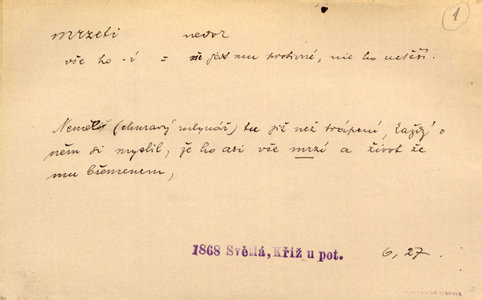 1
mrzeti nedok
vše ho -í = vše jest mu protivné, nic ho netěší.
Neměl (churavý mlynář) tu již než trápení, každý o
něm si myslil, že ho asi vše mrzí a život že
mu břemenem,
1868 Světlá, Kříž u pot. 6, 27.